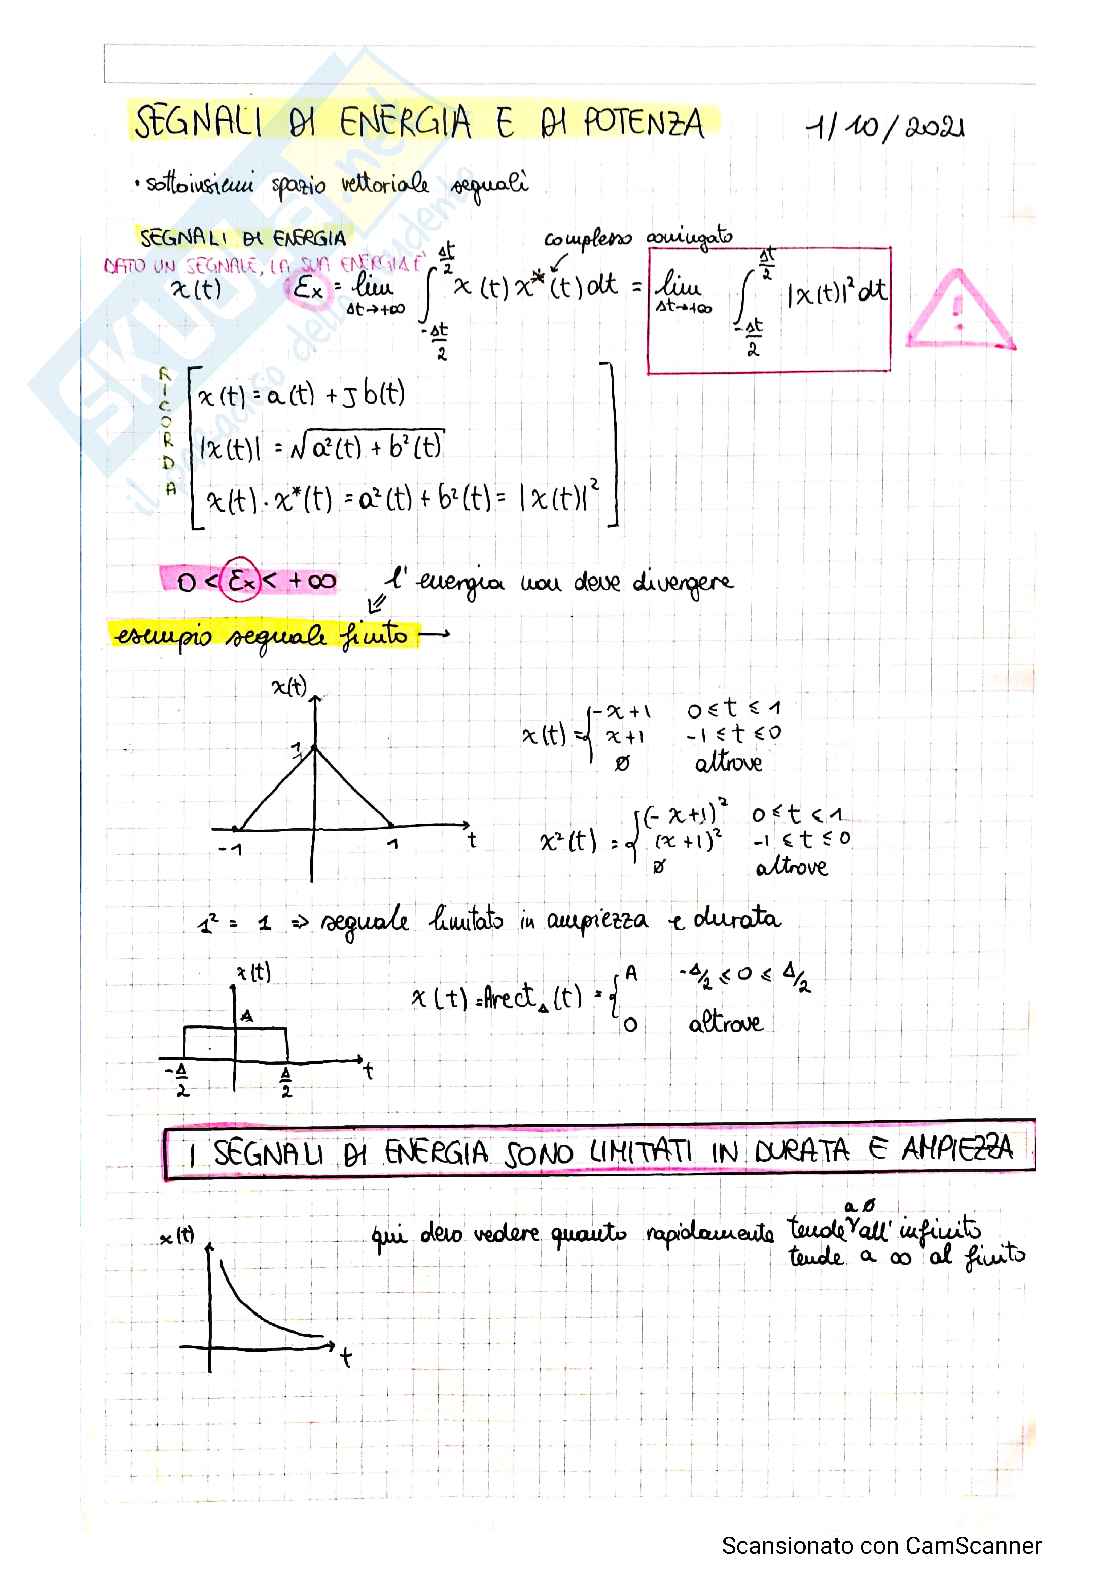 SEGNALI DI ENERGIA E DI POTENZA 1/10/2021
• sottoinsiemi spazio vettoriale segnali
SEGNALI DI ENERGIA
complesso coniugato
DATO UN SEGNALE, LA SUA ENERGIA È
x(t) Ɛx = lim Δt→+∞ ∫_{-Δt/2}^{Δt/2} x(t) x*(t) dt = lim Δt→+∞ ∫_{-Δt/2}^{Δt/2} |x(t)|² dt
!
RICORDA
x(t) = a(t) + J b(t)
|x(t)| = √a²(t) + b²(t)
x(t) · x*(t) = a²(t) + b²(t) = |x(t)|²
0 < Ɛx < +∞ l'energia non deve divergere
esempio segnale finito →
x(t)
1
-1 1 t
x(t) = { -x+1 0 ≤ t ≤ 1
x+1 -1 ≤ t ≤ 0
ø altrove
x²(t) = { (-x+1)² 0 ≤ t < 1
(x+1)² -1 ≤ t ≤ 0
ø altrove
1² = 1 => segnale limitato in ampiezza e durata
x(t)
A
-Δ/2 Δ/2 t
x(t) = A rect_Δ(t) = { A -Δ/2 ≤ 0 ≤ Δ/2
0 altrove
I SEGNALI DI ENERGIA SONO LIMITATI IN DURATA E AMPIEZZA
x(t)
t
qui devo vedere quanto rapidamente tende a ø all'infinito
tende a ∞ al finito
SKUOLA.net
il paradiso dello studente
Scansionato con CamScanner